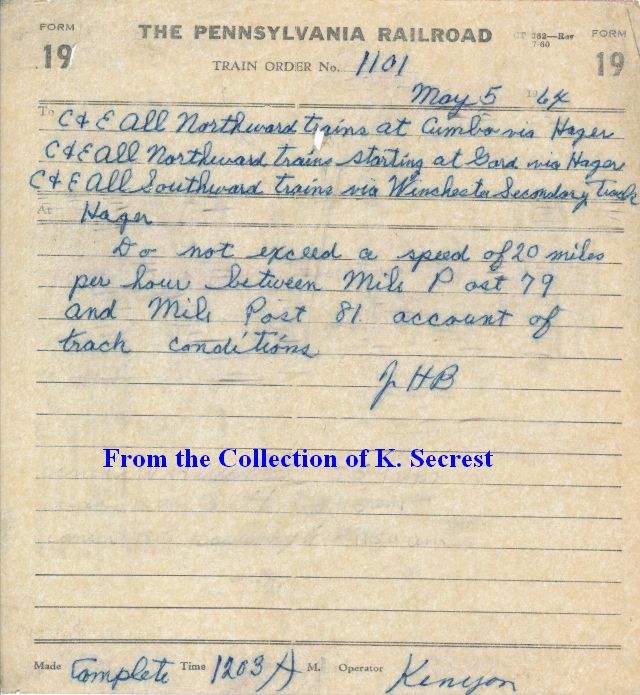 FORM 19
THE PENNSYLVANIA RAILROAD
CT 362—Rev 7-60
FORM 19
TRAIN ORDER No. 1101
May 5 1964
To C & E All Northward trains at Cumbo via Hager
C & E All Northward trains starting at Gard via Hager
C & E All Southward trains via Winchester Secondary Track
At Hager
Do not exceed a speed of 20 miles
per hour between Mile Post 79
and Mile Post 81 account of
track conditions
JHB
From the Collection of K. Secrest
Made Complete Time 1203 A M. Operator Kenyon